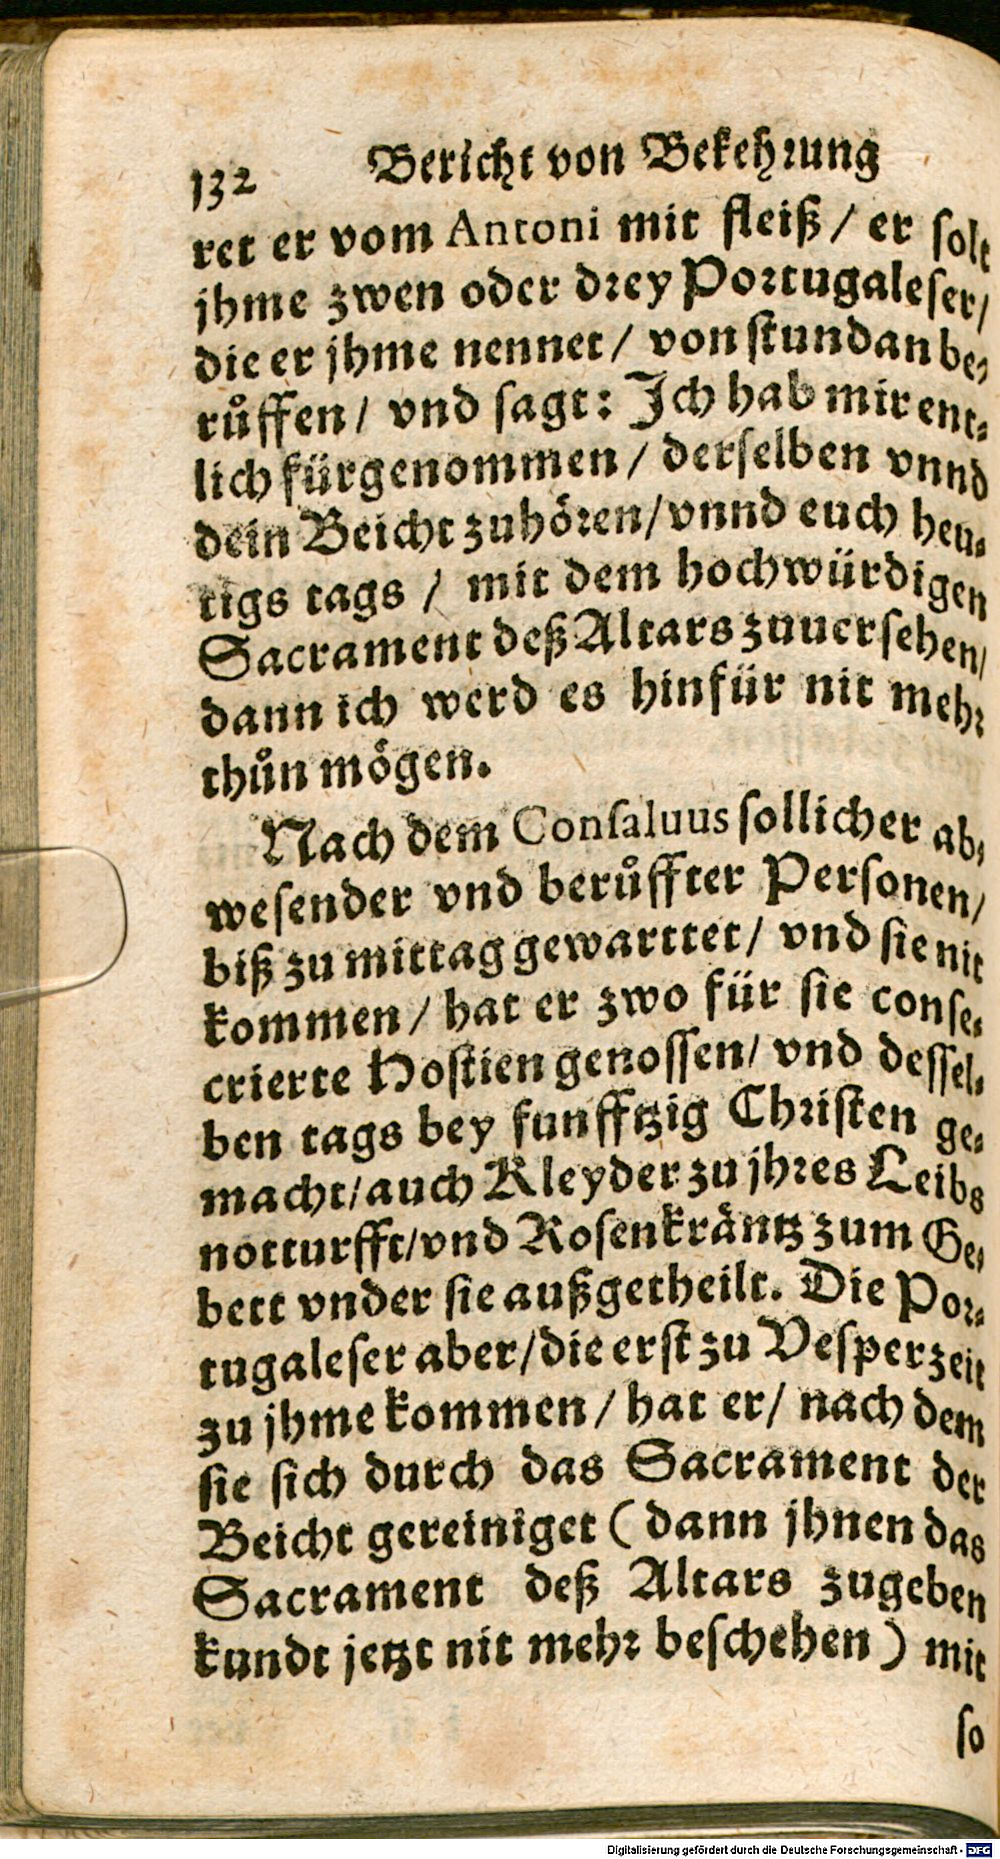 132 Bericht von Bekehrung
ret er vom Antoni mit fleiß / er solt
jhme zwen oder drey Portugaleser/
die er jhme nennet / von stund an be⸗
růffen / vnd sagt: Ich hab mir ent⸗
lich fürgenommen / derselben vnnd
dein Beicht zuhören/vnnd euch heu⸗
tigs tags / mit dem hochwürdigen
Sacrament deß Altars zuuersehen/
dann ich werd es hinfür nit mehr
thůn mögen.
Nach dem Consaluus sollicher ab⸗
wesender vnd berůffter Personen/
biß zu mittag gewarttet / vnd sie nit
kommen / hat er zwo für sie conse⸗
crierte Hostien genossen/ vnd dessel⸗
ben tags bey funfftzig Christen ge⸗
macht/auch Kleyder zu jhres Leibs
notturfft/vnd Rosenkräntz zum Ge⸗
bett vnder sie außgetheilt. Die Por⸗
tugaleser aber/die erst zu Vesperzeit
zu jhme kommen / hat er/ nach dem
sie sich durch das Sacrament der
Beicht gereiniget (dann jhnen das
Sacrament deß Altars zugeben
kundt jetzt nit mehr beschehen) mit
so
Digitalisierung gefördert durch die Deutsche Forschungsgemeinschaft - DFG